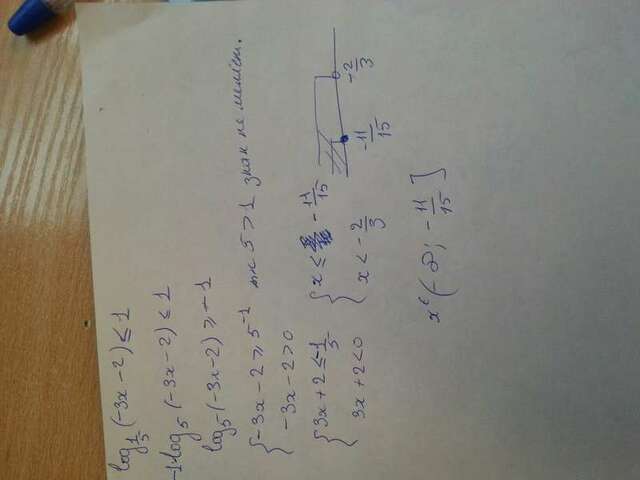 log_{1/5}(-3x-2) ≤ 1
-1·log_5(-3x-2) ≤ 1
log_5(-3x-2) ≥ -1
{ -3x-2 ≥ 5^{-1} т.к 5 > 1 знак не меняем.
-3x-2 > 0
{ 3x+2 ≤ -1/5 { x ≤ -11/15
3x+2 < 0 x < -2/3
-11/15 -2/3
x ∈ (-∞; -11/15]